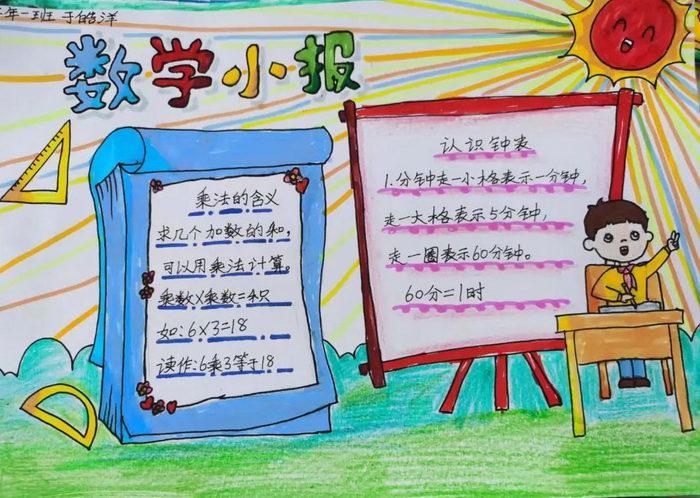 年一班 于皓洋
数学小报
乘法的含义
求几个加数的和,
可以用乘法计算。
乘数×乘数=积
如:6×3=18
读作:6乘3等于18
认识钟表
1.分钟走一小格表示一分钟,
走一大格表示5分钟,
走一圈表示60分钟。
60分=1时